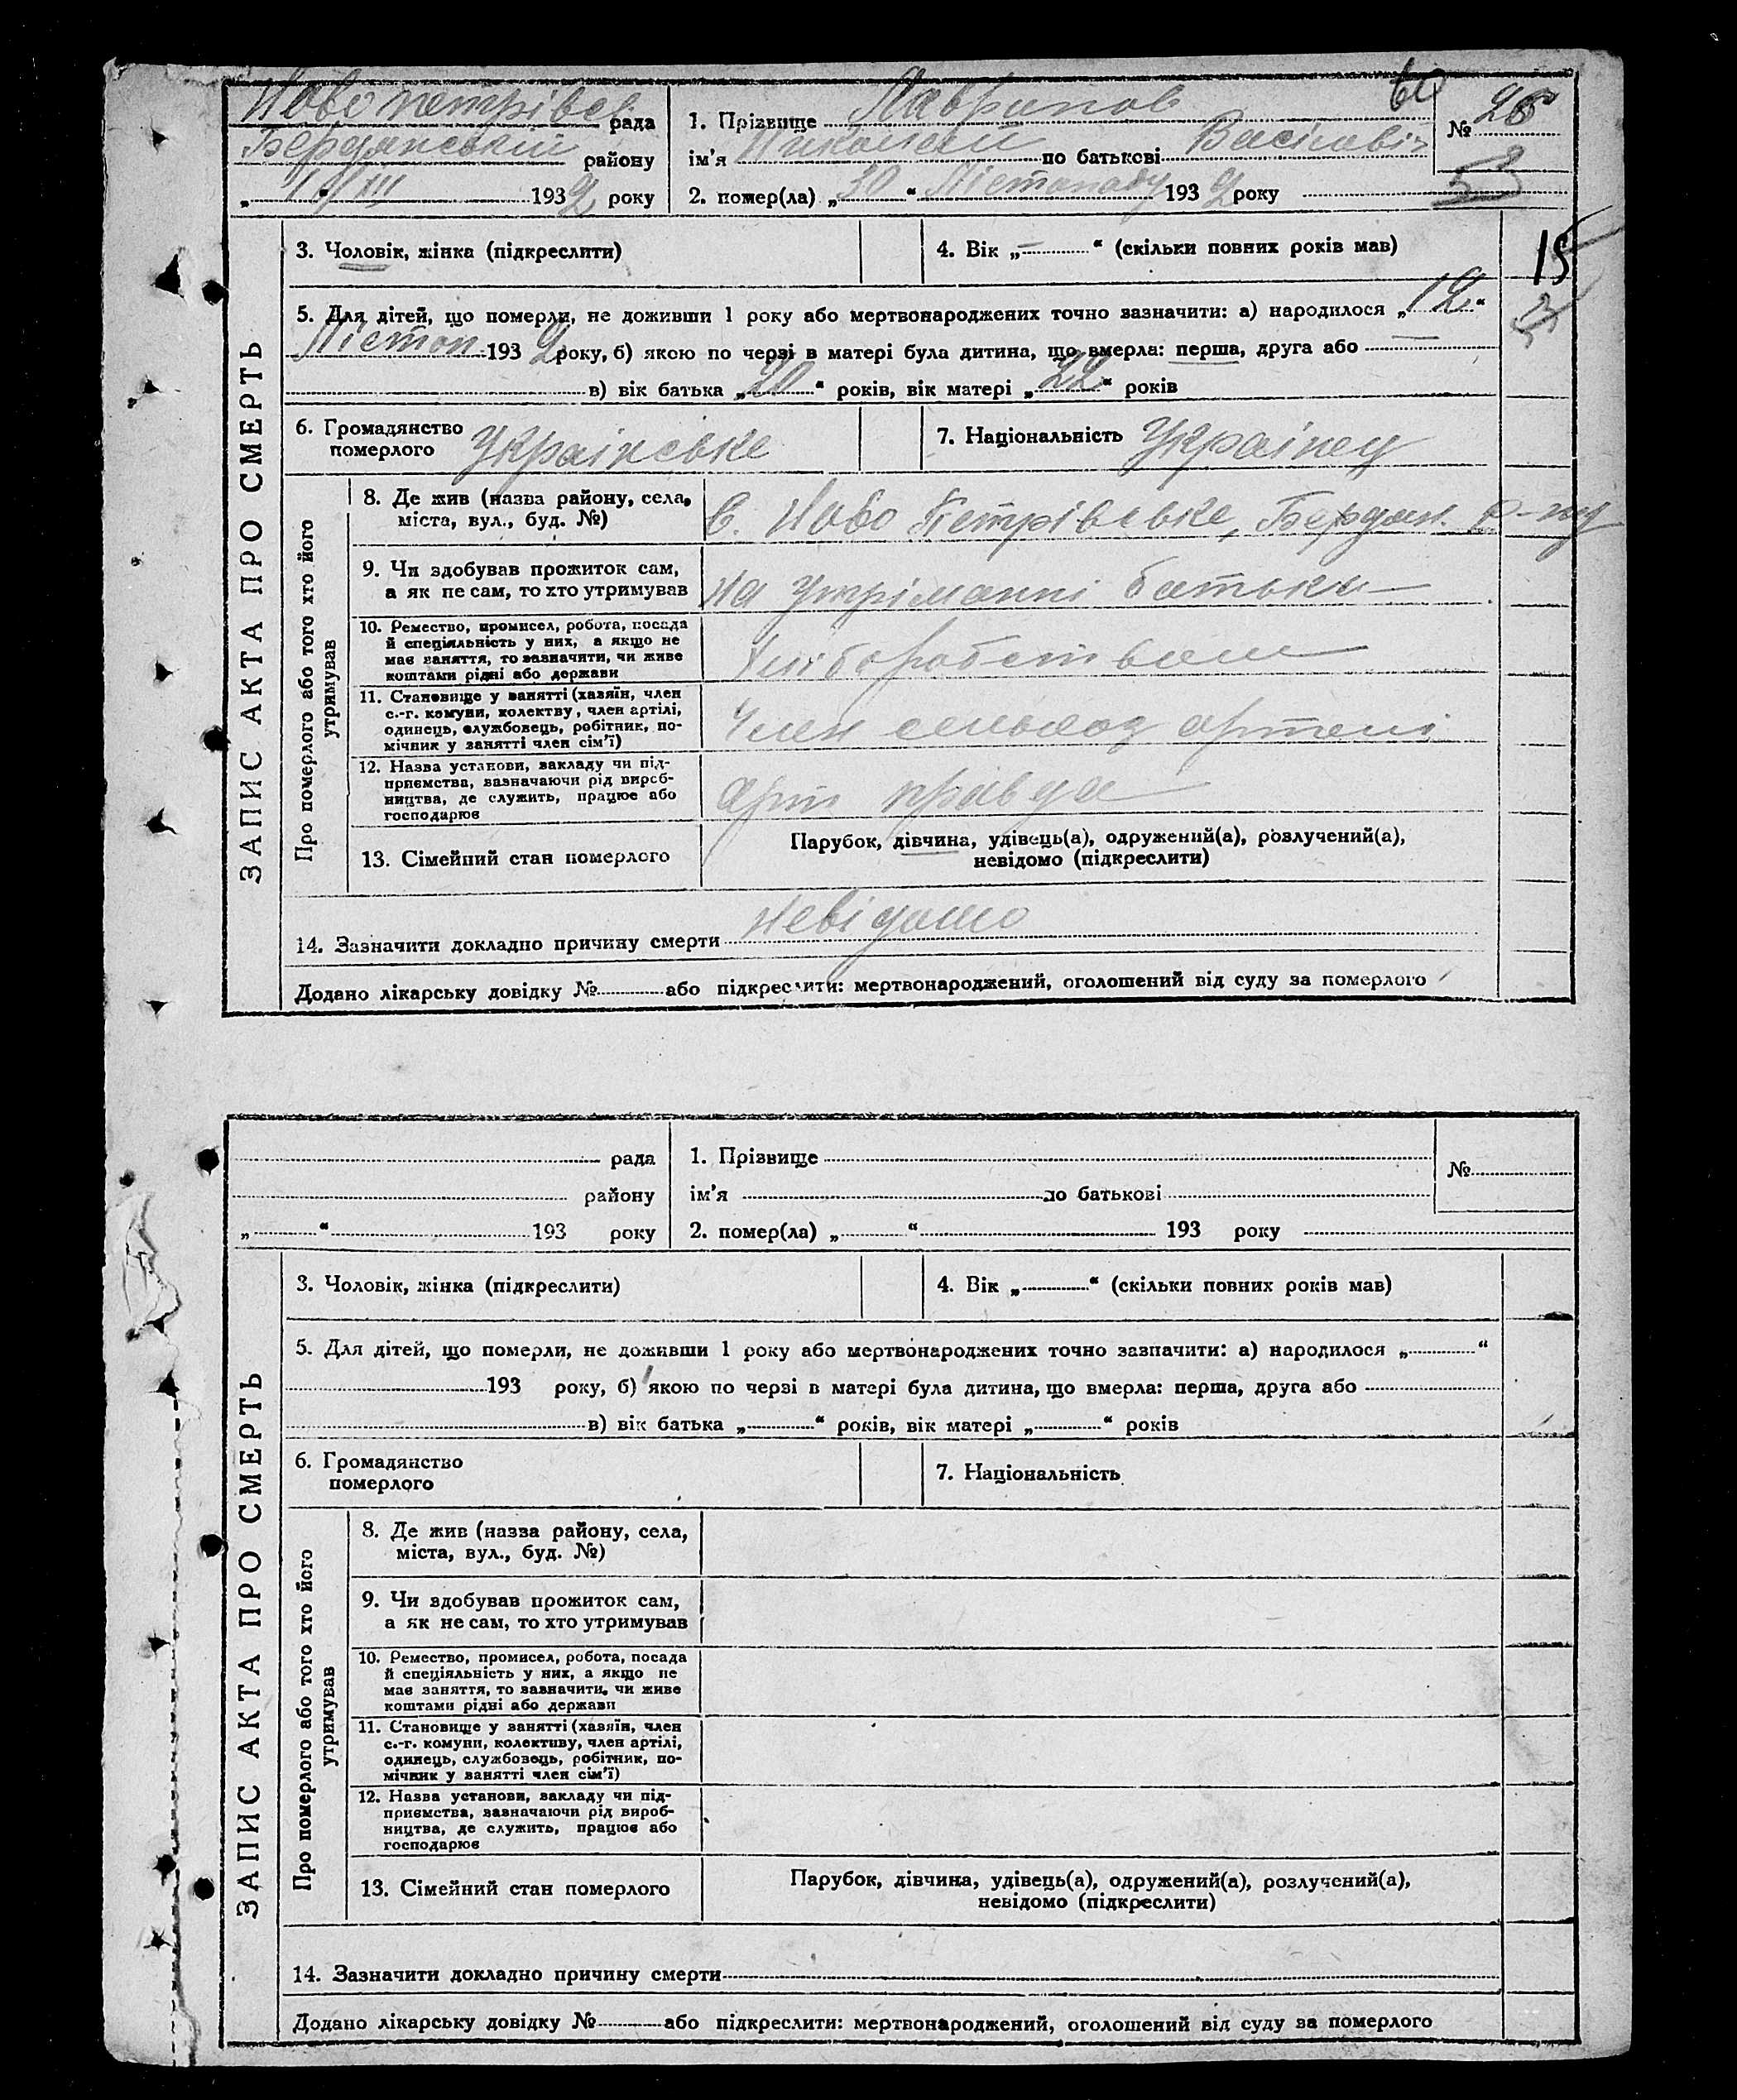 Ново петрівсь рада
Бердянський району
1/XII 1932 року
1. Прізвище Лавринов
ім'я Николай по батькові Василавіч
2. помер(ла) „30“ Лістопаду 1932 року
№ 26
53
3. Чоловік, жінка (підкреслити)
4. Вік „—“ (скільки повних років мав)
15
5. Для дітей, що померли, не доживши 1 року або мертвонароджених точно зазначити: а) народилося „12“
Лістоп 1932 року, б) якою по черзі в матері була дитина, що вмерла: перша, друга або —
в) вік батька „20“ років, вік матері „22“ років
6. Громадянство
померлого Українське
7. Національність Українец
ЗАПИС АКТА ПРО СМЕРТЬ
Про померлого або того хто його
утримував
8. Де жив (назва району, села,
міста, вул., буд. №)
С. Ново Петрівське, Бердян. р-ну
9. Чи здобував прожиток сам,
а як не сам, то хто утримував
на утріманні батька
10. Ремество, промисел, робота, посада
й спеціяльність у них, а якщо не
має заняття, то зазначити, чи живе
коштами рідні або держави
Хліборобством
11. Становище у занятті (хазяїн, член
с.-г. комуни, колектву, член артілі,
одинець, службовець, робітник, по-
мічник у занятті член сім'ї)
Член сельхоз артелі
12. Назва установи, закладу чи під-
приємства, зазначаючи рід вироб-
ництва, де служить, працює або
господарює
арт правда
13. Сімейний стан померлого
Парубок, дівчина, удівець(а), одружений(а), розлучений(а),
невідомо (підкреслити)
14. Зазначити докладно причину смерти Невідомо
Додано лікарську довідку № або підкреслити: мертвонароджений, оголошений від суду за померлого
рада
району
„ “ 193 року
1. Прізвище
ім'я по батькові
2. помер(ла) „ “ 193 року
№
3. Чоловік, жінка (підкреслити)
4. Вік „ “ (скільки повних років мав)
5. Для дітей, що померли, не доживши 1 року або мертвонароджених точно зазначити: а) народилося „ “
193 року, б) якою по черзі в матері була дитина, що вмерла: перша, друга або
в) вік батька „ “ років, вік матері „ “ років
6. Громадянство
померлого
7. Національність
ЗАПИС АКТА ПРО СМЕРТЬ
Про померлого або того хто його
утримував
8. Де жив (назва району, села,
міста, вул., буд. №)
9. Чи здобував прожиток сам,
а як не сам, то хто утримував
10. Ремество, промисел, робота, посада
й спеціяльність у них, а якщо не
має заняття, то зазначити, чи живе
коштами рідні або держави
11. Становище у занятті (хазяїн, член
с.-г. комуни, колективу, член артілі,
одинець, службовець, робітник, по-
мічник у занятті член сім'ї)
12. Назва установи, закладу чи під-
приємства, зазначаючи рід вироб-
ництва, де служить, працює або
господарює
13. Сімейний стан померлого
Парубок, дівчина, удівець(а), одружений(а), розлучений(а),
невідомо (підкреслити)
14. Зазначити докладно причину смерти
Додано лікарську довідку № або підкреслити: мертвонароджений, оголошений від суду за померлого